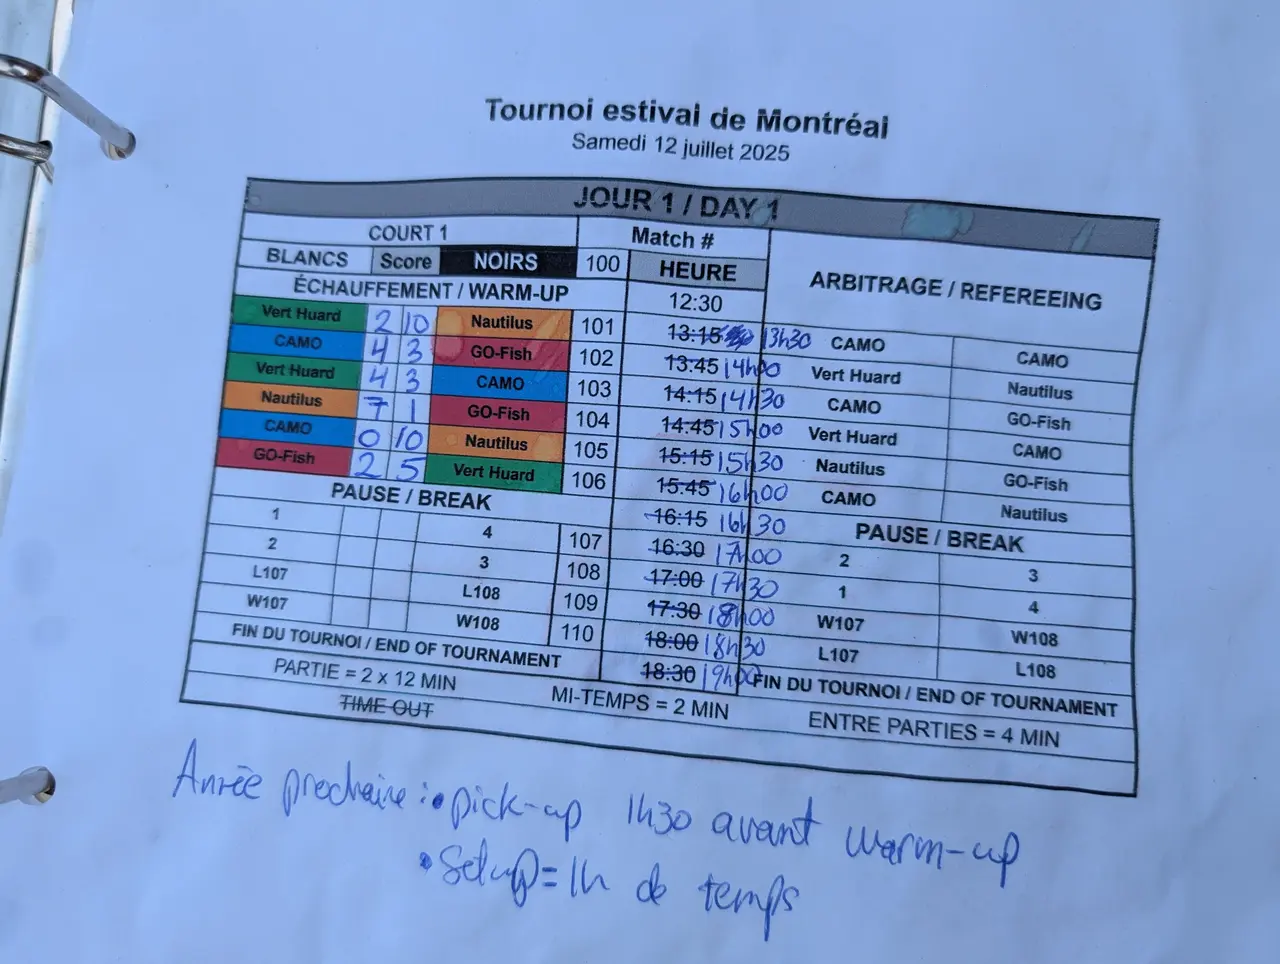 Tournoi estival de Montréal
Samedi 12 juillet 2025
JOUR 1 / DAY 1
COURT 1 Match # ARBITRAGE / REFEREEING
BLANCS Score NOIRS 100 HEURE
ÉCHAUFFEMENT / WARM-UP 12:30
Vert Huard 2 10 Nautilus 101 13:15 13h30 CAMO CAMO
CAMO 4 3 GO-Fish 102 13:45 14h00 Vert Huard Nautilus
Vert Huard 4 3 CAMO 103 14:15 14h30 CAMO GO-Fish
Nautilus 7 1 GO-Fish 104 14:45 15h00 Vert Huard CAMO
CAMO 0 10 Nautilus 105 15:15 15h30 Nautilus GO-Fish
GO-Fish 2 5 Vert Huard 106 15:45 16h00 CAMO Nautilus
PAUSE / BREAK 16:15 16h30 PAUSE / BREAK
1 4 107 16:30 17h00 2 3
2 3 108 17:00 17h30 1 4
L107 L108 109 17:30 18h00 W107 W108
W107 W108 110 18:00 18h30 L107 L108
FIN DU TOURNOI / END OF TOURNAMENT 18:30 19h00 FIN DU TOURNOI / END OF TOURNAMENT
PARTIE = 2 x 12 MIN MI-TEMPS = 2 MIN ENTRE PARTIES = 4 MIN
TIME OUT
Année prochaine : • pick-up 1h30 avant warm-up
• Setup = 1h de temps